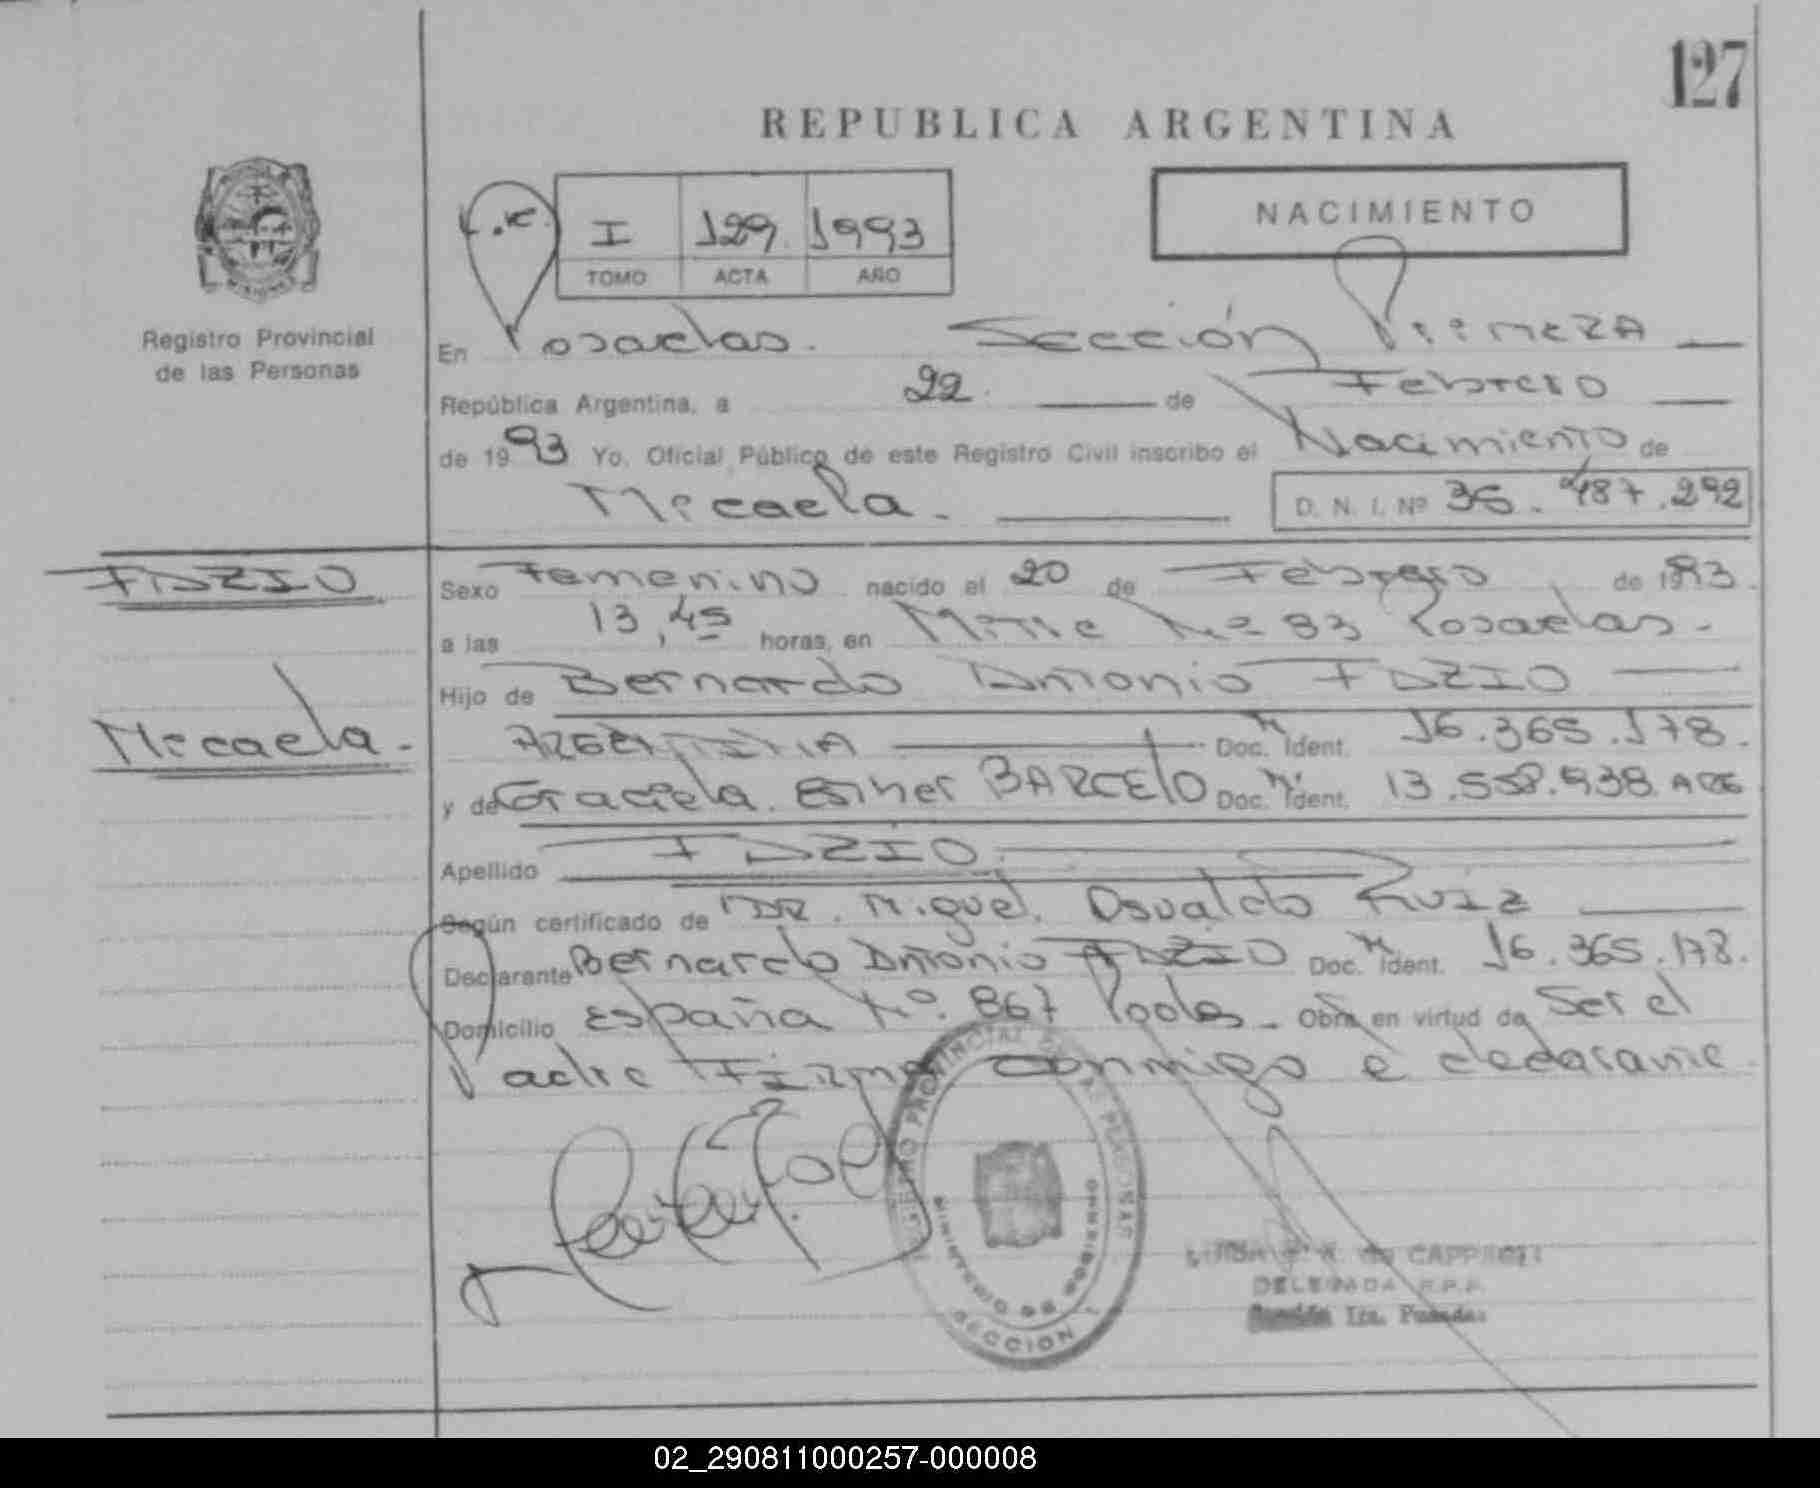 127
REPUBLICA ARGENTINA
I 129 1993
TOMO ACTA AÑO
NACIMIENTO
Registro Provincial
de las Personas
En Posadas. Sección Primera
República Argentina, a 22 de Febrero
de 1993 Yo, Oficial Público de este Registro Civil inscribo el Nacimiento de
Micaela. D. N. I. Nº 36.487.292
FAZIO
Micaela.
Sexo Femenino nacido el 20 de Febrero de 1993.
a las 13,45 horas, en Mitre Nº 83 Posadas.
Hijo de Bernardo Antonio FAZIO
ARGENTINA Doc. M Ident. 16.365.178.
y de Graciela. Esther BARCELO Doc. M Ident. 13.558.938. ARG
Apellido FAZIO.
Según certificado de DR. Miguel. Osvaldo Ruiz
Declarante Bernardo Antonio FAZIO Doc. M Ident. 16.365.178.
Domicilio España Nº. 867 Pdas. Obra en virtud de Ser el
Padre Firma conmigo é declarante.
REGISTRO PROVINCIAL DE LAS PERSONAS
MINISTERIO DE GOBIERNO
SECCION 1
DELEGADA R.P.P.
Sección 1ra. Posadas
02_290811000257-000008